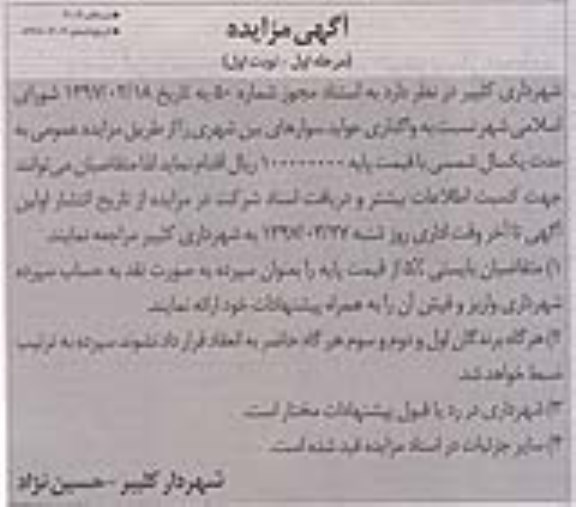 آگهی مزایده
(مرحله اول - نوبت اول)
شهرداری کلیبر در نظر دارد به استناد مجوز شماره ۵۰ به تاریخ ۱۳۹۷/۰۲/۱۸ شورای
اسلامی شهر نسبت به واگذاری عواید سوارهای بین شهری را از طریق مزایده عمومی به
مدت یکسال شمسی با قیمت پایه ریال اقدام نماید لذا متقاضیان می توانند
جهت کسب اطلاعات بیشتر و دریافت اسناد شرکت در مزایده از تاریخ انتشار اولین
آگهی تا آخر وقت اداری روز شنبه به شهرداری کلیبر مراجعه نمایند.
۱) متقاضیان بایستی ۵٪ از قیمت پایه را بعنوان سپرده به صورت نقد به حساب سپرده
شهرداری واریز و فیش آن را به همراه پیشنهادات خود ارائه نمایند.
۲) هرگاه برندگان اول و دوم و سوم هرگاه حاضر به انعقاد قرار داد نشوند سپرده به ترتیب
ضبط خواهد شد.
۳) شهرداری در رد یا قبول پیشنهادات مختار است.
۴) سایر جزئیات در اسناد مزایده قید شده است.
شهردار کلیبر - حسین نژاد